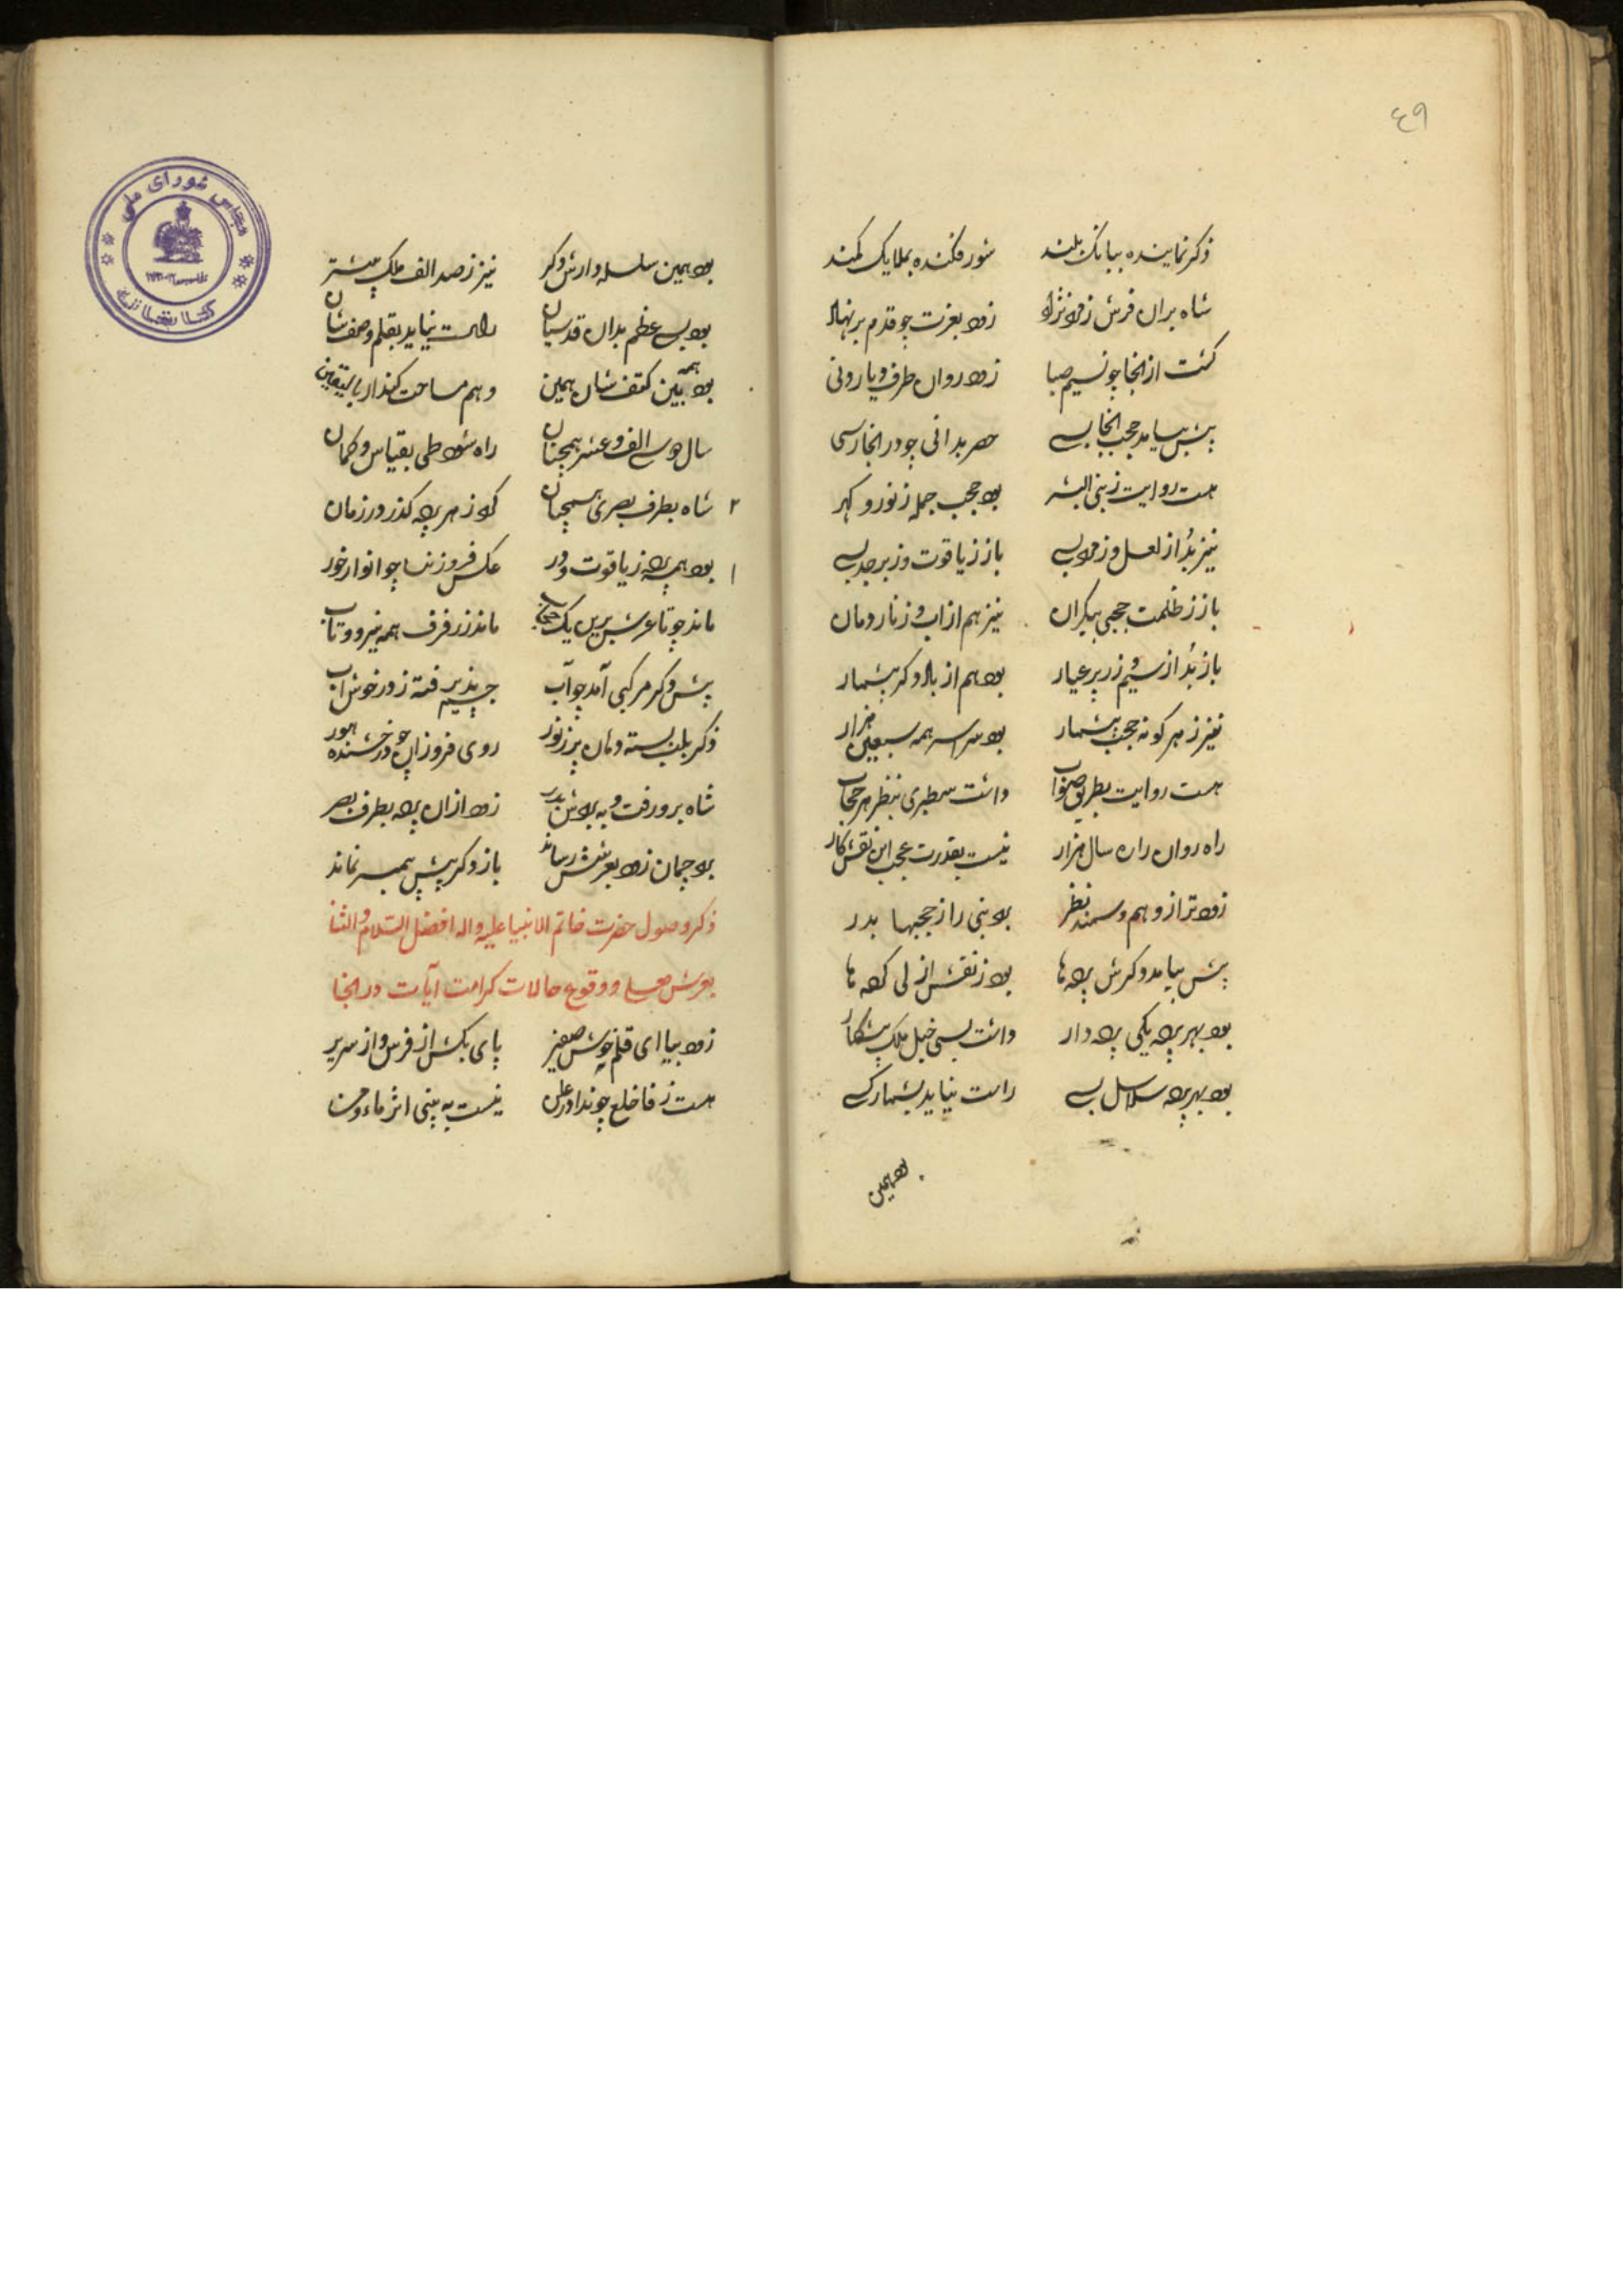 ٤٩
ذکر نماینده ببانک بلند شور فکنده بملایک کمند
شاه بران فرش زمرد نژاد زود بعزت چو قدم بر نهاد
کشت از انجا چو نسیم صبا زود روان طرف دیار
پیش بیامد حجب انجا بسی حصر بدانی چو در انجا رسی
هست روایت ز نبی البشر بود حجب جمله ز نور و کهر
نیز بُد از لعل و زمرد بسی باز ز یاقوت و زبرجد بسی
باز ز ظلمت حجبی بیکران نیز هم از اب و ز نار و دمان
باز بُد از سیم و زر پر عیار بود هم از باد دکر بیشمار
نیز ز هر کونه حجب بیشمار بود سراسر همه سبعین هزار
هست روایت بطریق صواب داشت سطبری بنظر هر حجاب
راه روان را ره سال هزار نیست بقدرت عجب این نقش کار
زود تر از وهم و سمند نظر برد نبی را ز حجبها بدر
پیش بیامد دکرش پرده ها بود ز نقش ازلی کرده ها
بود بهر پرده یکی پرده دار داشت بسی خیل ملک پیشکار
بود بهر پرده سلاسل بسی راست نیاید بشمار کسی
بود همین
بود همین سلسله وارش دکر نیز ز صد الف ملک بیشتر
بود بسی عظم بدان قدسیان راست نیاید بقلم وصف شان
بود همه بین کتف شان همین وهم مساحت کند ار بالیقین
سال دو سی الف و عشر همچنان راه شود طی بقیاس و کمان
۲ شاه بطرف بصری همچنان کرد ز هر پرده کذر در زمان
۱ بود همه پرده ز یاقوت و در عکس فروزنده چو انوار خور
ماند چو تا عرش برین یک حجاب ماند ز رفرف همه نیرو و تاب
پیش دکر مرکبی آمد چو آب
ذکر بلب بسته دهان پر ز نور روی فروزان چو درخشنده هور
شاه برو رفت و به بردش بدر زود ازان پرده بطرف بصر
برد چمان زود بعرشش رساند باز دکر پیش پیمبر نماند
ذکر وصول حضرت خاتم الانبیا علیه واله افضل السلام والثنا
بعرش معلی و وقوع حالات کرامت آیات در انجا
زود بیا ای قلم خوش صفیر پای بکش از فرس و از سریر
هست ز فاخلع چو ندا در علن نیست به بینی اثر ماء و من
مجلس شورای ملی
کتابخانه